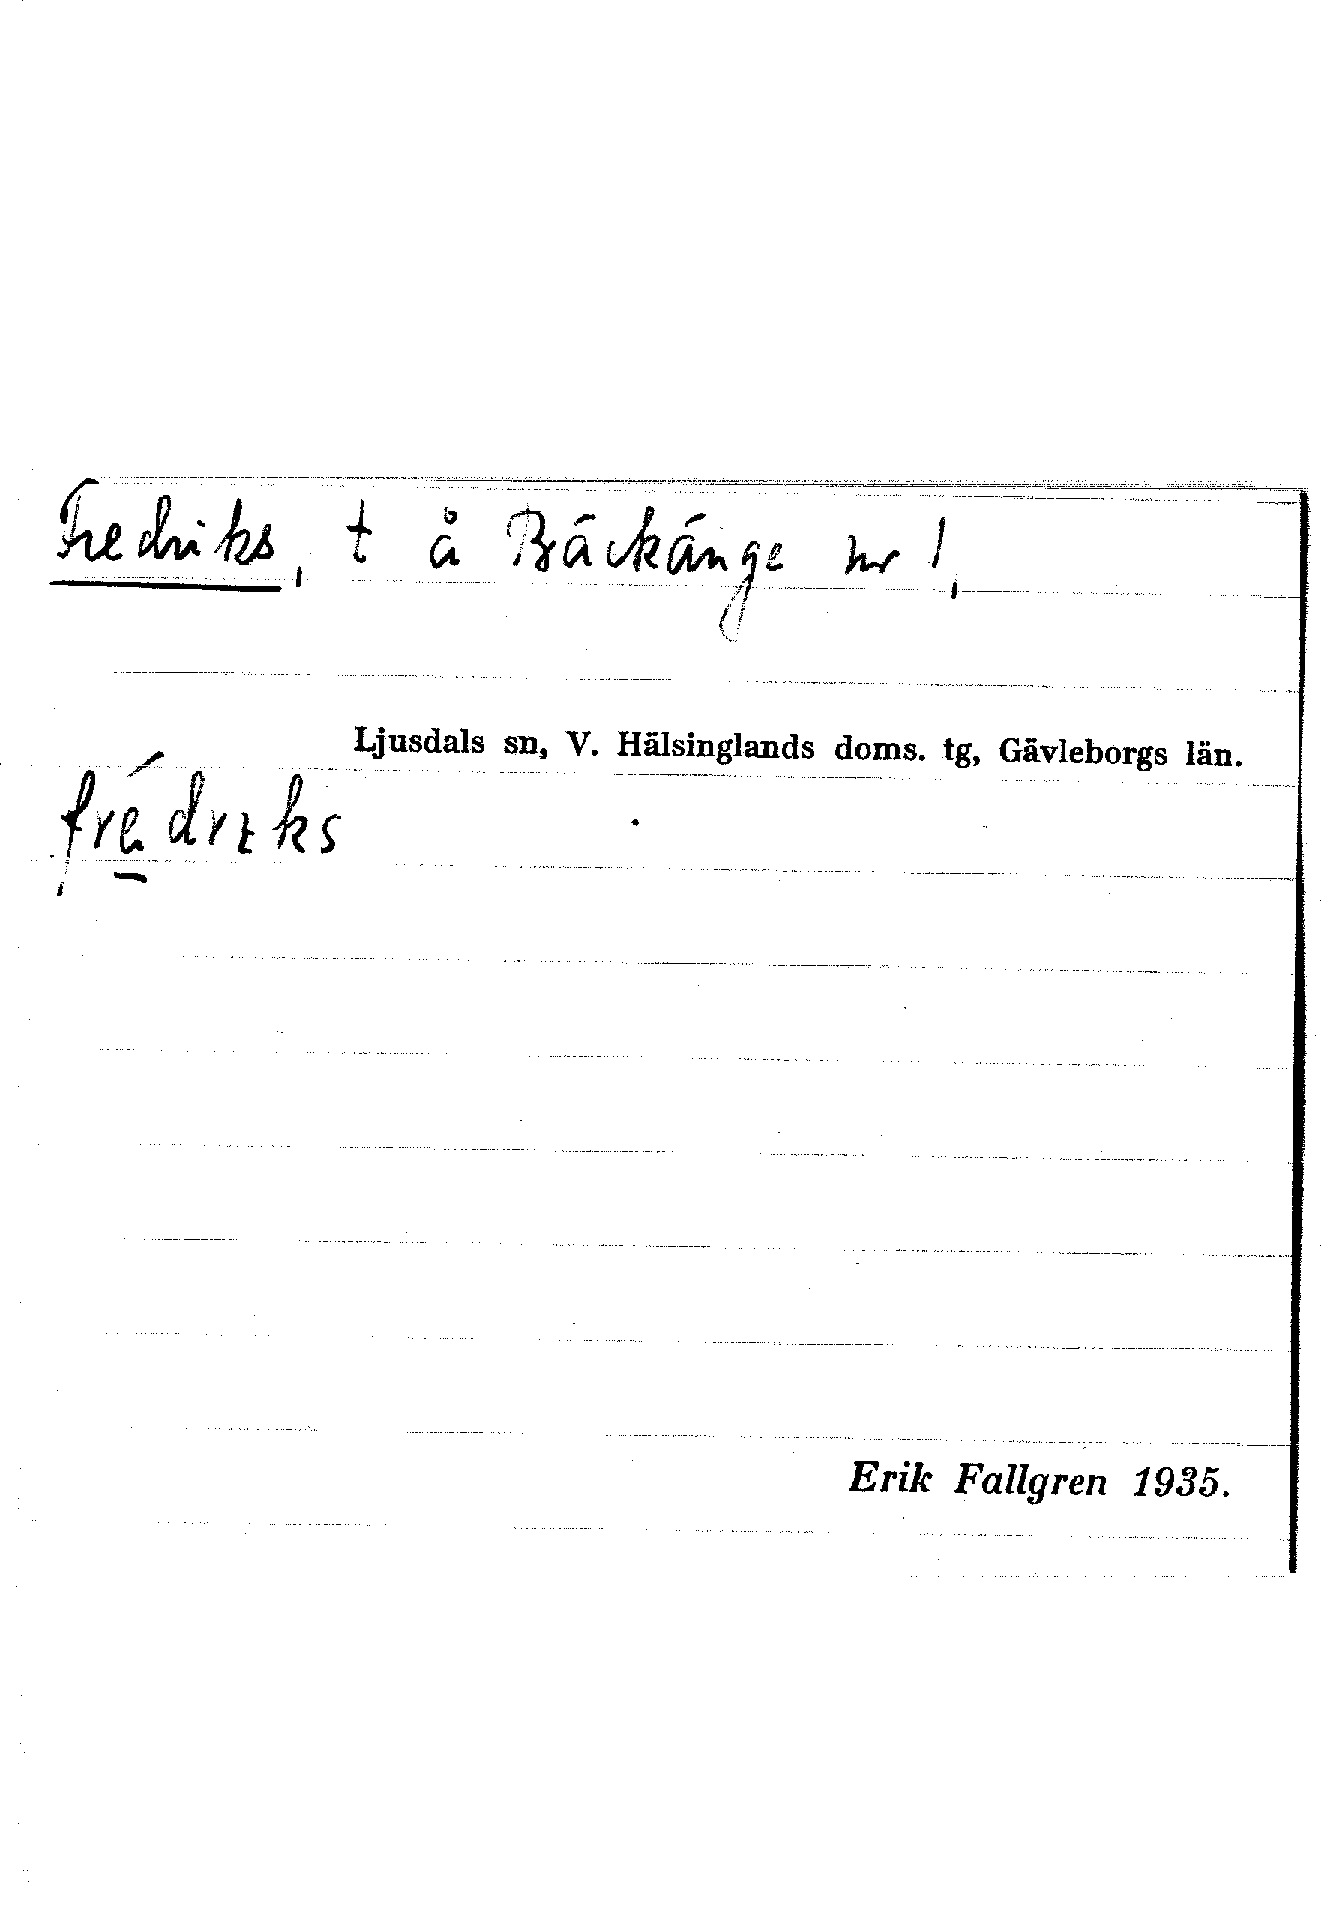 Fredriks, t å Bäckänge nr 1,
Ljusdals sn, V. Hälsinglands doms. tg, Gävleborgs län.
frédrıks
Erik Fallgren 1935.